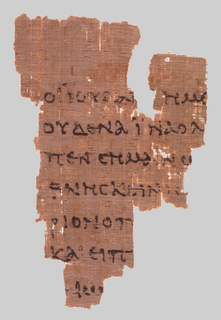 ΟΙ ΙΟΥΔΑΙ ΗΜΕ
ΟΥΔΕΝΑ ΙΝΑ Ο ΛΟ
ΠΕΝ CΗΜΑΙΝΩ
ΘΝΗCΚΕΙΝ
ΡΙΟΝ Ο Π
ΚΑΙ ΕΙΠ